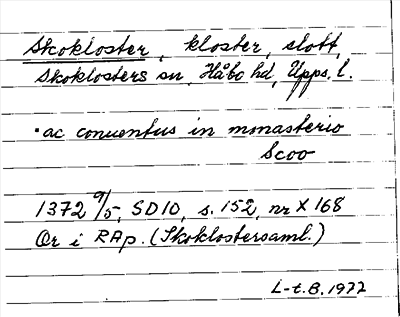 Skokloster, kloster, slott,
Skoklosters sn, Håbo hd, Upps. l.
·ac conuentus in monasterio
Scoo
1372 9/5, SD10, s. 152, nr X 168
Or i RAp. (Skoklostersaml.)
L-t.B. 1972